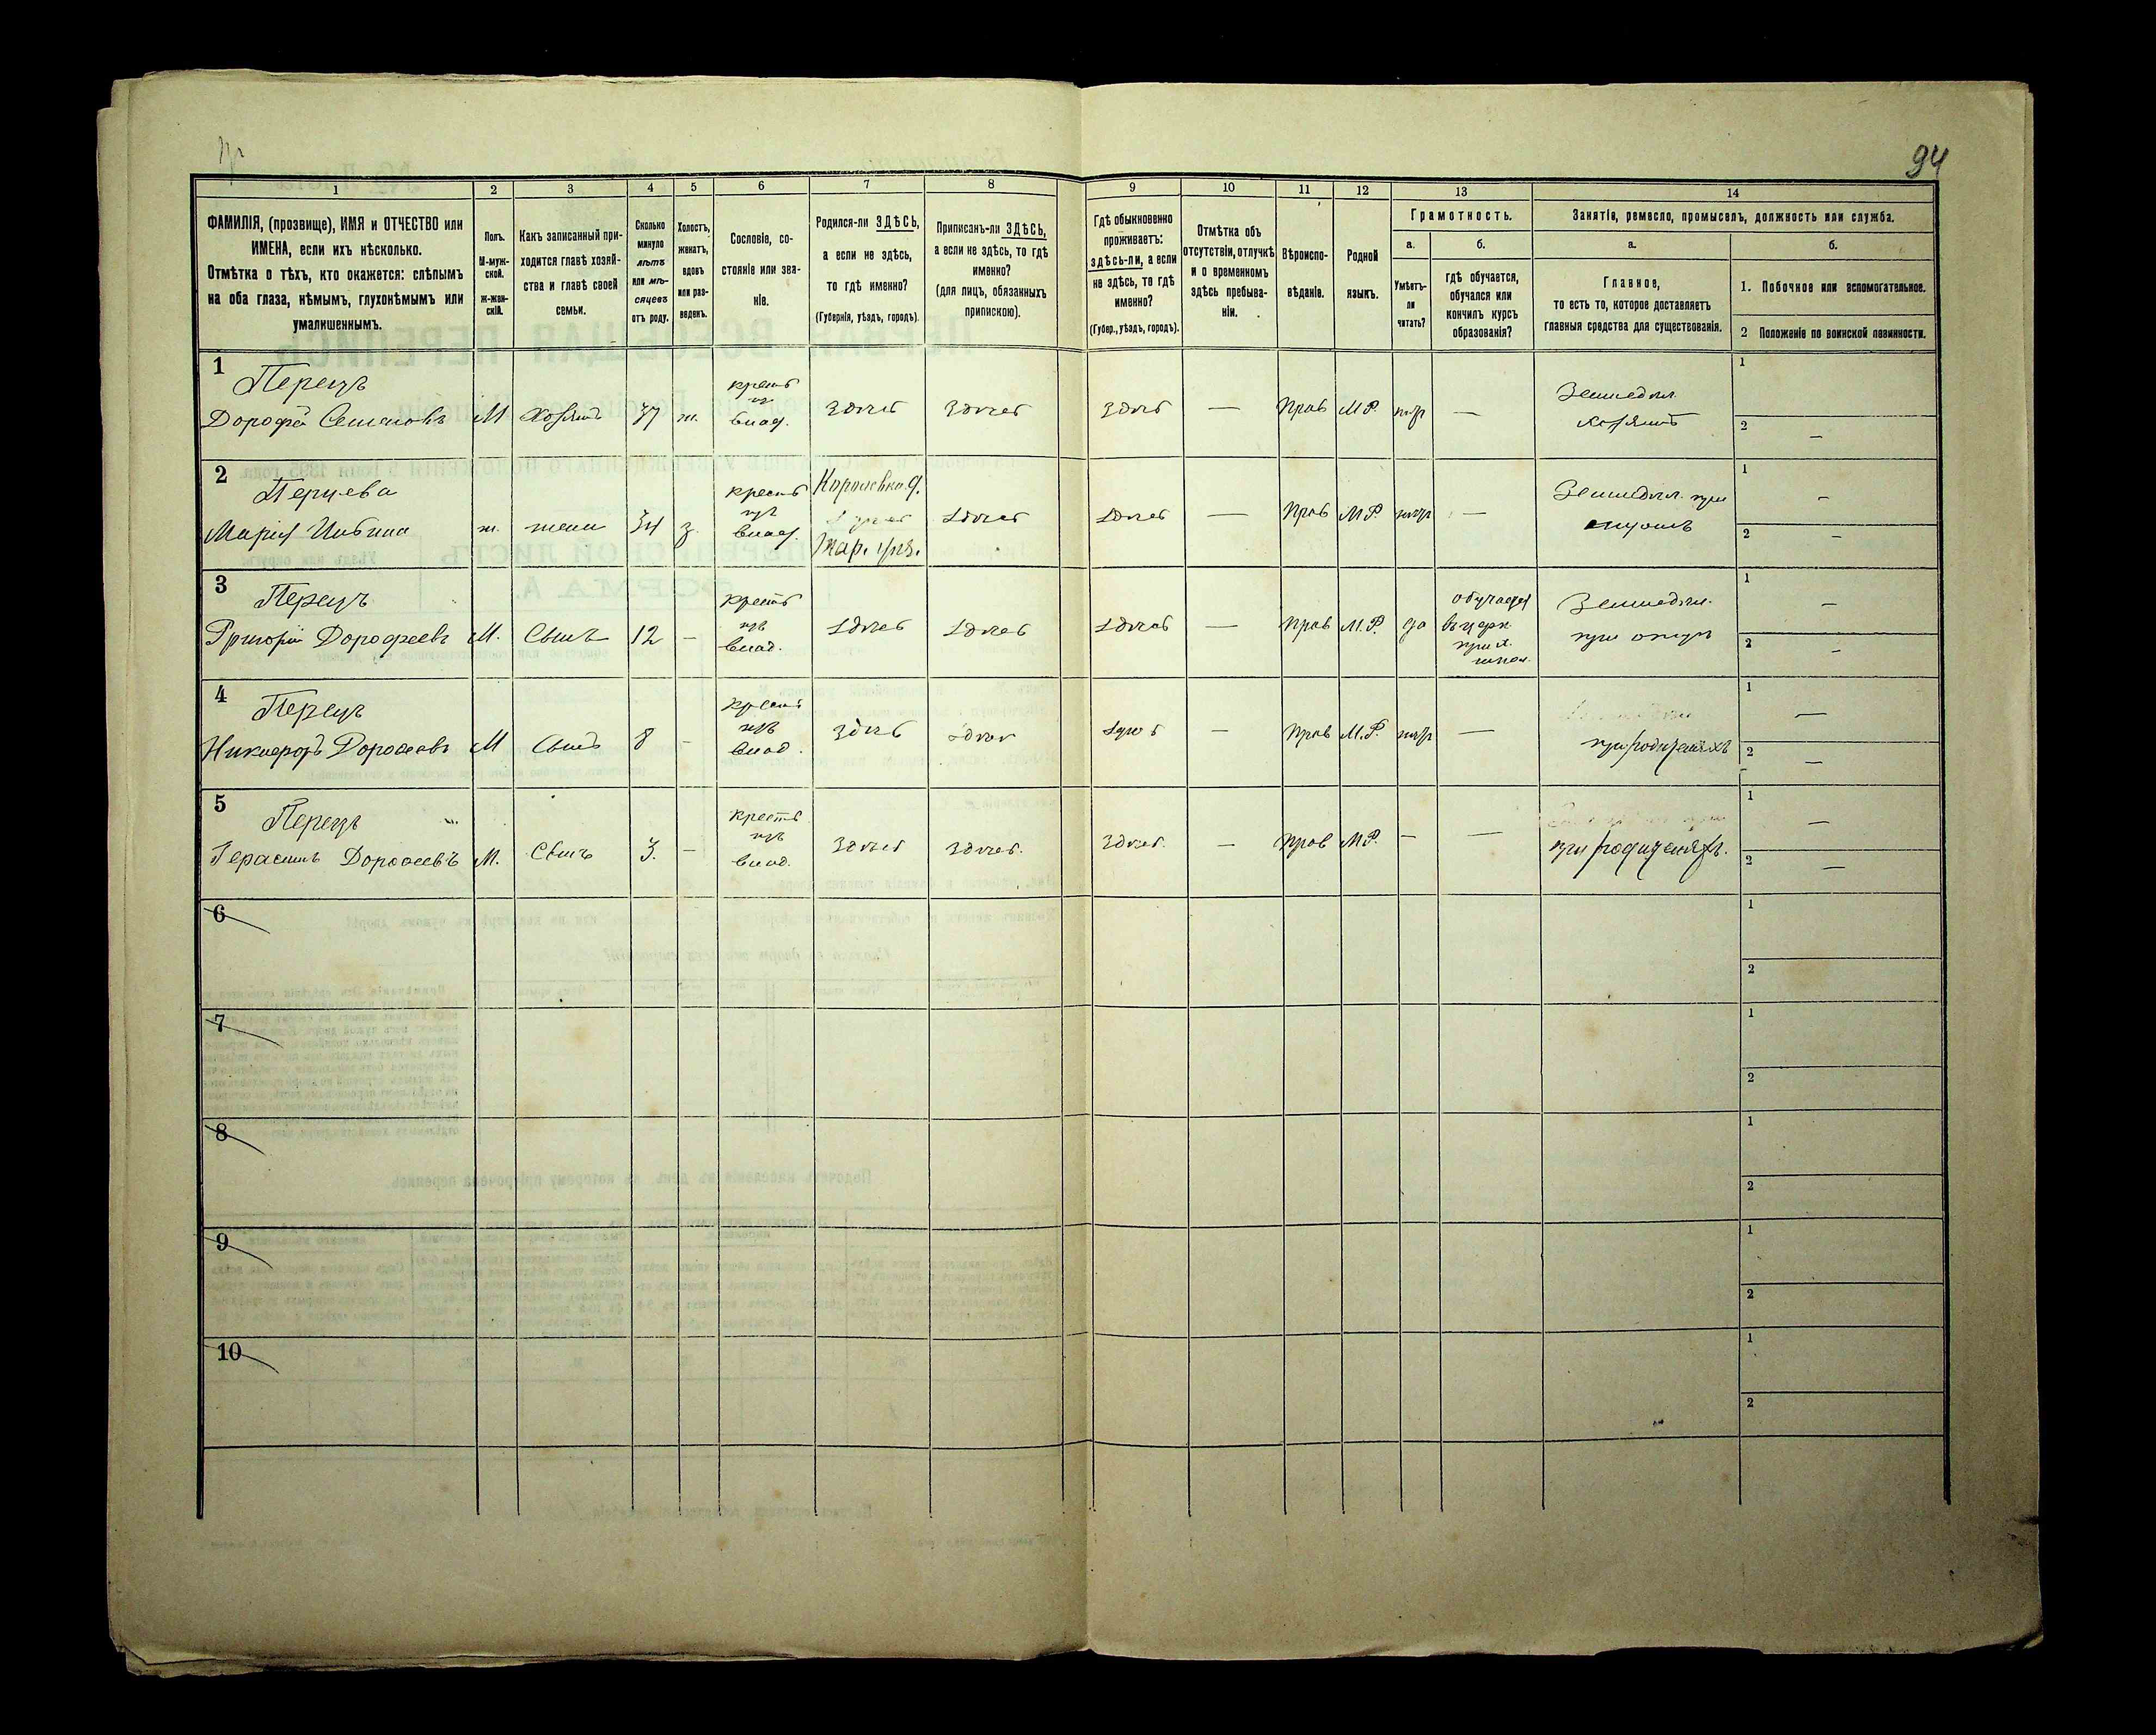 94
1 2 3 4 5 6 7 8 9 10 11 12 13 14
ФАМИЛІЯ, (прозвище), ИМЯ и ОТЧЕСТВО или
ИМЕНА, если ихъ нѣсколько.
Отмѣтка о тѣхъ, кто окажется: слѣпымъ
на оба глаза, нѣмымъ, глухонѣмымъ или
умалишеннымъ.
Полъ.
М-муж-
ской.
Ж-жен-
скій.
Какъ записанный при-
ходится главѣ хозяй-
ства и главѣ своей
семьи.
Сколько
минуло
лѣтъ
или мѣ-
сяцевъ
отъ роду.
Холостъ,
женатъ,
вдовъ
или раз-
веденъ.
Сословіе, со-
стояніе или зва-
ніе.
Родился-ли ЗДѢСЬ,
а если не здѣсь,
то гдѣ именно?
(Губернія, уѣздъ, городъ).
Приписанъ-ли ЗДѢСЬ,
а если не здѣсь, то гдѣ
именно?
(для лицъ, обязанныхъ
припискою).
Гдѣ обыкновенно
проживаетъ:
здѣсь-ли, а если
не здѣсь, то гдѣ
именно?
(Губер., уѣздъ, городъ).
Отмѣтка объ
отсутствіи, отлучкѣ
и о временномъ
здѣсь пребыва-
ніи.
Вѣроиспо-
вѣданіе.
Родной
языкъ.
Грамотность.
а.
Умѣетъ-
ли
читать?
б.
гдѣ обучается,
обучался или
кончилъ курсъ
образованія?
Занятіе, ремесло, промыселъ, должность или служба.
а.
Главное,
то есть то, которое доставляетъ
главныя средства для существованія.
б.
1. Побочное или вспомогательное.
2 Положеніе по воинской повинности.
1
Перецъ
Дорофей Семеновъ М Хозяинъ 37 ж. крест изъ влад. здѣсь здѣсь здѣсь — Прав М.Р. нѣтъ — Земледѣл. хозяинъ 1 2 —
2
Перцева
Марія Ивовна ж. жена 34 з. крест изъ влад. Королевка д. Хар. губ. здѣсь здѣсь — Прав М.Р. нѣтъ — Земледѣл. при мужѣ 1 — 2 —
3
Перецъ
Григорій Дорофеевъ М. Сынъ 12 — крест изъ влад. здѣсь здѣсь здѣсь — Прав М.Р. да обучается въ церк. прих. школ. Земледѣл. при отцѣ 1 — 2 —
4
Перецъ
Никифоръ Дорофеевъ М Сынъ 8 - крест изъ влад. здѣсь здѣсь здѣсь — Прав М.Р. нѣтъ — при родителяхъ 1 — 2 —
5
Перецъ
Герасимъ Дорофеевъ М. Сынъ 3. — крест изъ влад. здѣсь здѣсь. здѣсь. — Прав М.Р. — — при родителяхъ. 1 — 2 —
6 1
2
7 1
2
8 1
2
9 1
2
10 1
2